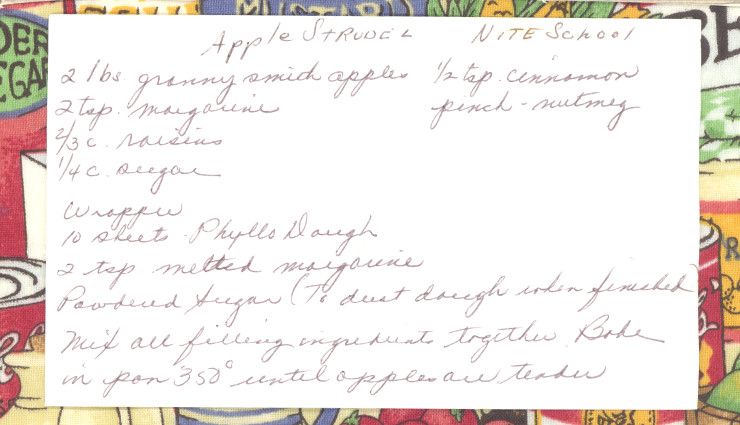 Apple STRUDEL NITE School
2 lbs granny smith apples 1/2 tsp. cinnamon
2 tsp. margarine pinch - nutmeg
2/3 c. raisins
1/4 c. sugar
Wrapper
10 sheets Phyllo Dough
2 tsp melted margarine
Powdered Sugar (To dust dough when finished)
Mix all filling ingredients together. Bake
in pan 350° until apples are tender
DER
EGA